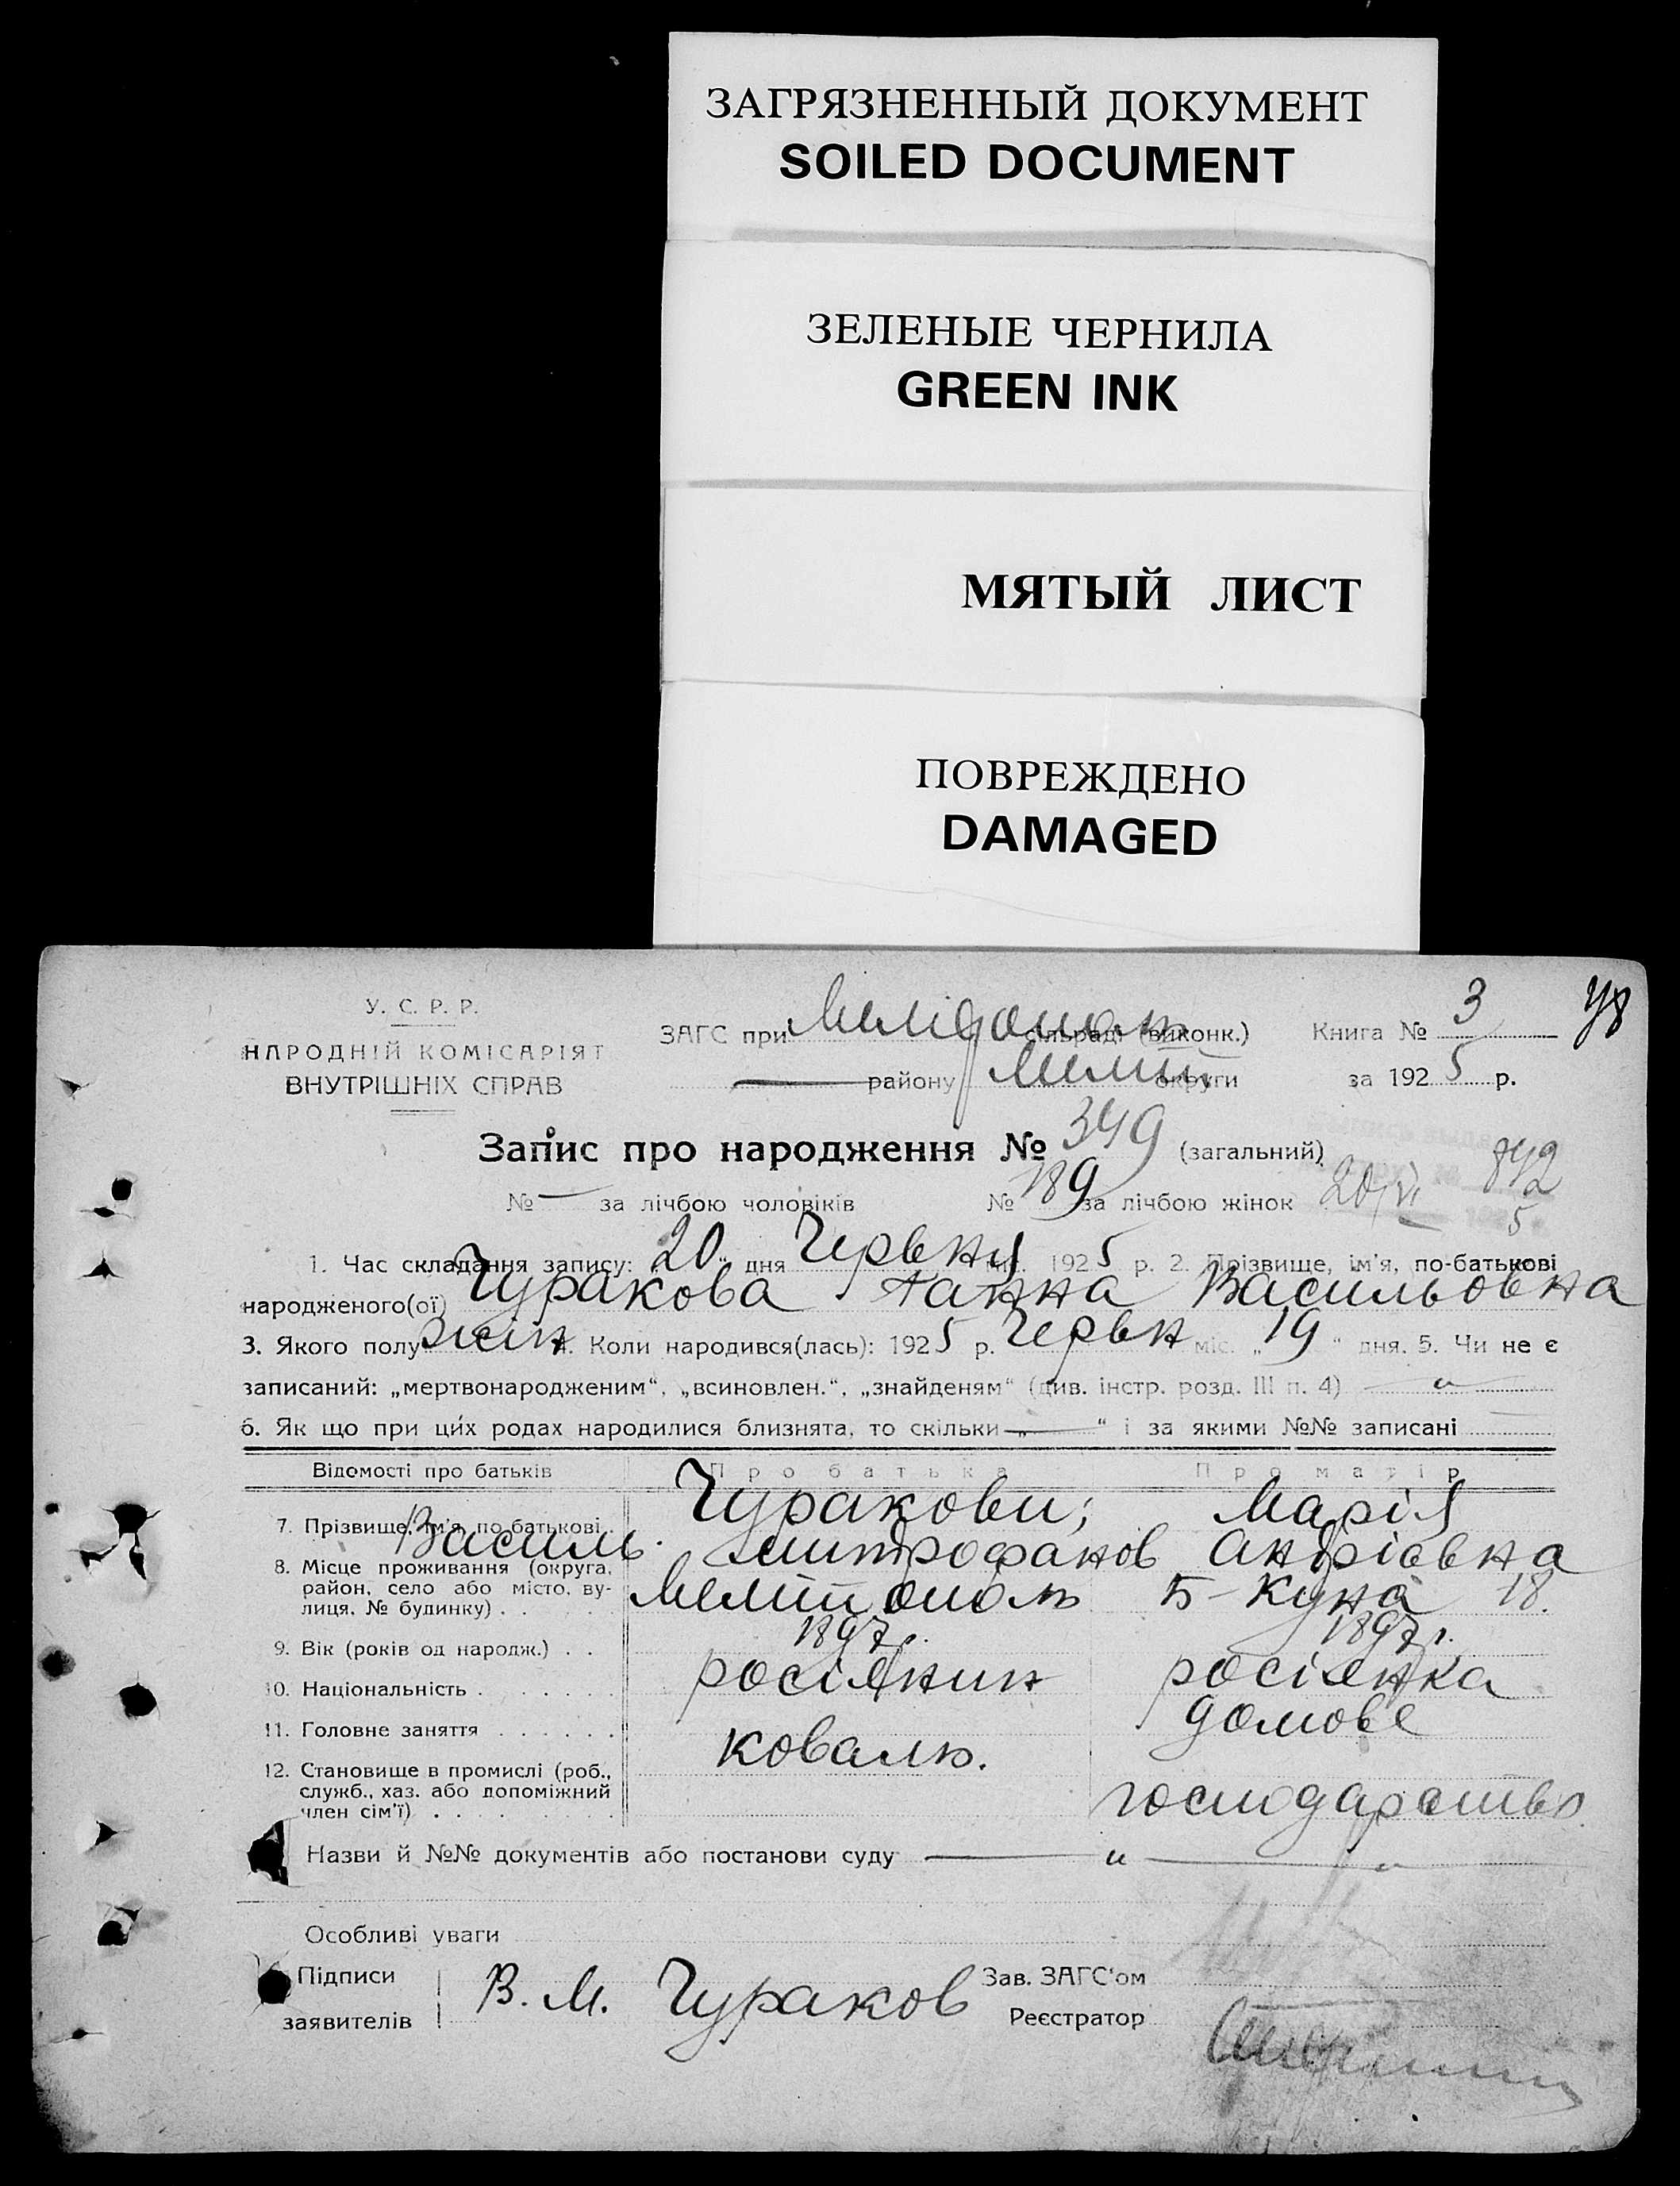 ЗАГРЯЗНЕННЫЙ ДОКУМЕНТ
SOILED DOCUMENT
ЗЕЛЕНЫЕ ЧЕРНИЛА
GREEN INK
МЯТЫЙ ЛИСТ
ПОВРЕЖДЕНО
DAMAGED
У. С. Р. Р.
НАРОДНІЙ КОМІСАРІЯТ
ВНУТРІШНІХ СПРАВ
ЗАГС при сільраді (виконк.) Книга № 3
району Меліт округи за 1925 р.
Запис про народження № 349 (загальний)
842
№ — за лічбою чоловіків № 189 за лічбою жінок 20/VI
5
1. Час складання запису: „20“ дня Червня міс. 1925 р. 2. Прізвище, ім'я, по-батькові
народженого(ої) Чуракова Ганна Васильовна
3. Якого полу жін 4. Коли народився(лась): 1925 р. Червн міс. „19“ дня. 5. Чи не є
записаний: „мертвонародженим“, „всиновлен.“, „знайденям“ (див. інстр. розд. III п. 4) — " —
6. Як що при цих родах народилися близнята, то скільки „—“ і за якими №№ записані
Відомості про батьків Про батька Про матір
Чуракови; Марія
7. Прізвище, ім'я, по батькові
Василь Митрофанов Андріівна
8. Місце проживання (округа, район, село або місто, вулиця, № будинку) Мелітополь Б-Куна 18.
9. Вік (років од народж.) 1897 р. 1897 р.
10. Національність росіянин росіянка
11. Головне заняття коваль. домове
12. Становище в промислі (роб., служб., хаз. або допоміжний член сім'ї) господарство
Назви й №№ документів або постанови суду — " — " —
Особливі уваги
Підписи
заявителів В. М. Чураков
Зав. ЗАГС'ом
Реєстратор